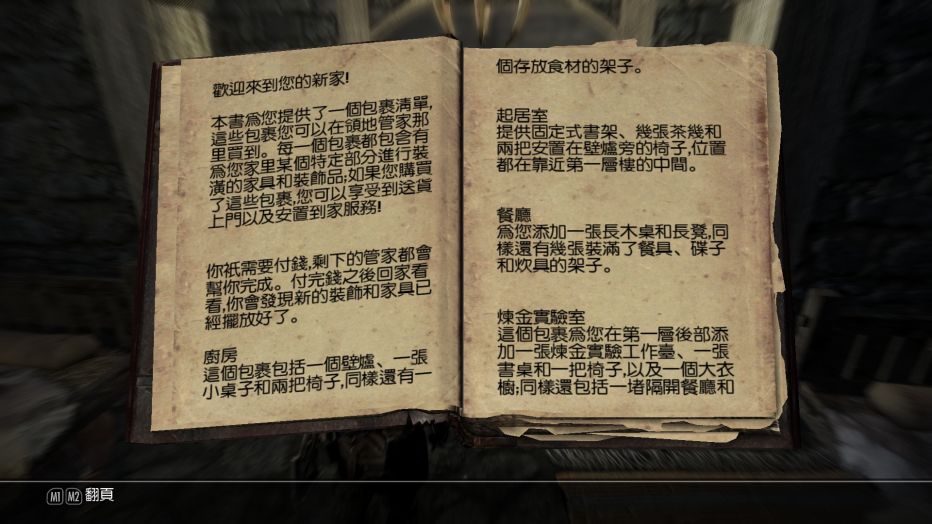 歡迎來到您的新家!
本書爲您提供了一個包裹清單,
這些包裹您可以在領地管家那
里買到。每一個包裹都包含有
爲您家里某個特定部分進行裝
潢的家具和裝飾品;如果您購買
了這些包裹,您可以享受到送貨
上門以及安置到家服務!
你衹需要付錢,剩下的管家都會
幫你完成。付完錢之後回家看
看,你會發現新的裝飾和家具已
經擺放好了。
廚房
這個包裹包括一個壁爐、一張
小桌子和兩把椅子,同樣還有一
個存放食材的架子。
起居室
提供固定式書架、幾張茶幾和
兩把安置在壁爐旁的椅子,位置
都在靠近第一層樓的中間。
餐廳
爲您添加一張長木桌和長凳,同
樣還有幾張裝滿了餐具、碟子
和炊具的架子。
煉金實驗室
這個包裹爲您在第一層後部添
加一張煉金實驗工作臺、一張
書桌和一把椅子,以及一個大衣
櫥;同樣還包括一堵隔開餐廳和
M1 M2 翻頁